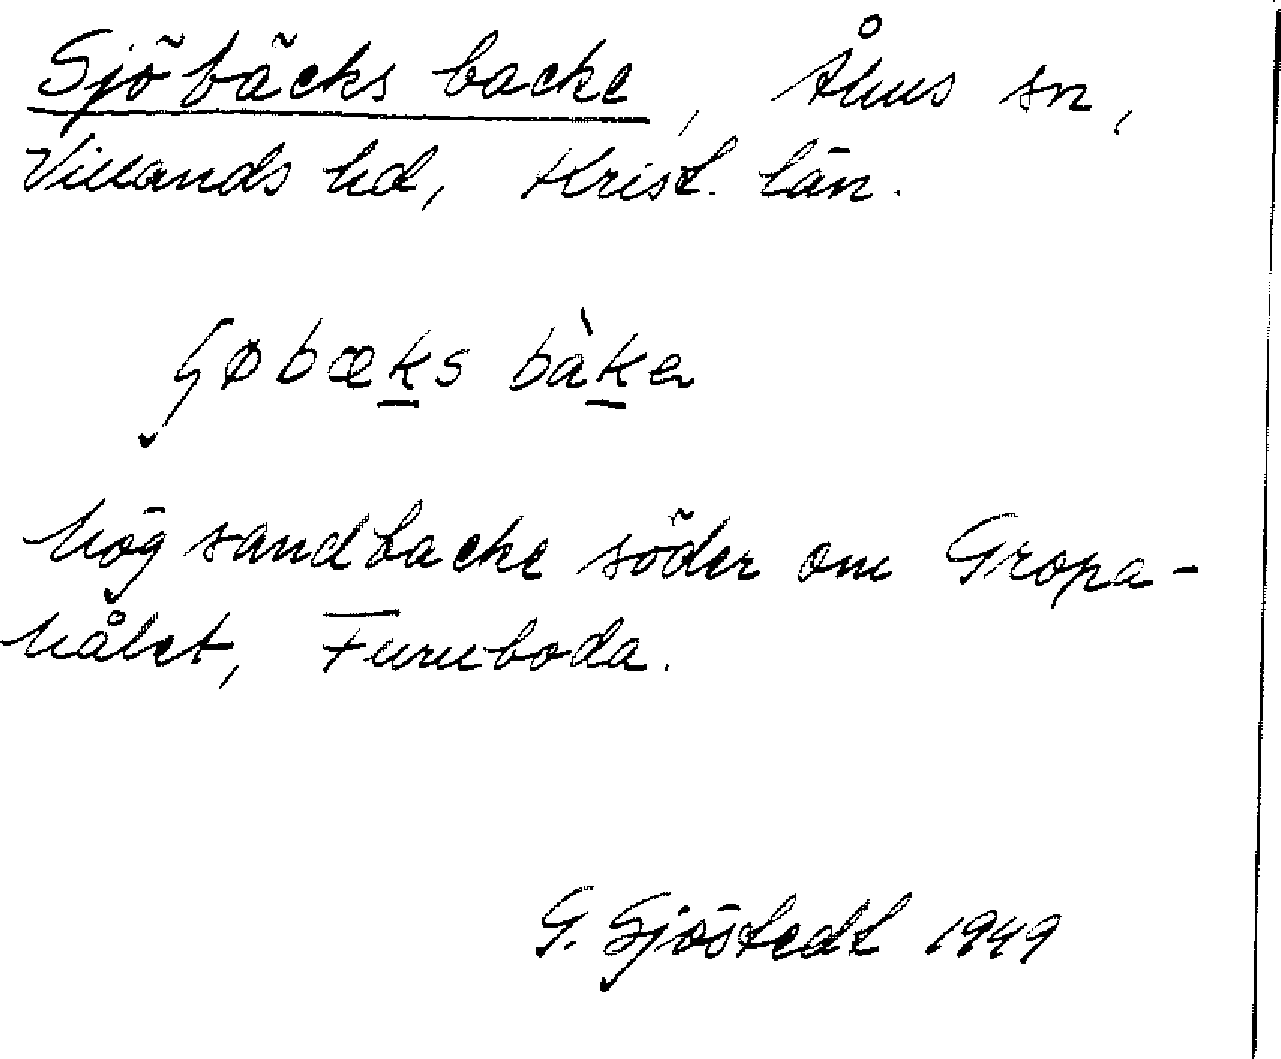 Sjöbäcks backe, Åhus sn,
Villands hd, Krist. län.
ʃøbæks bàkɐ
hög sandbacke söder om Gropa-
hålet, Furuboda.
G. Sjöstedt 1949